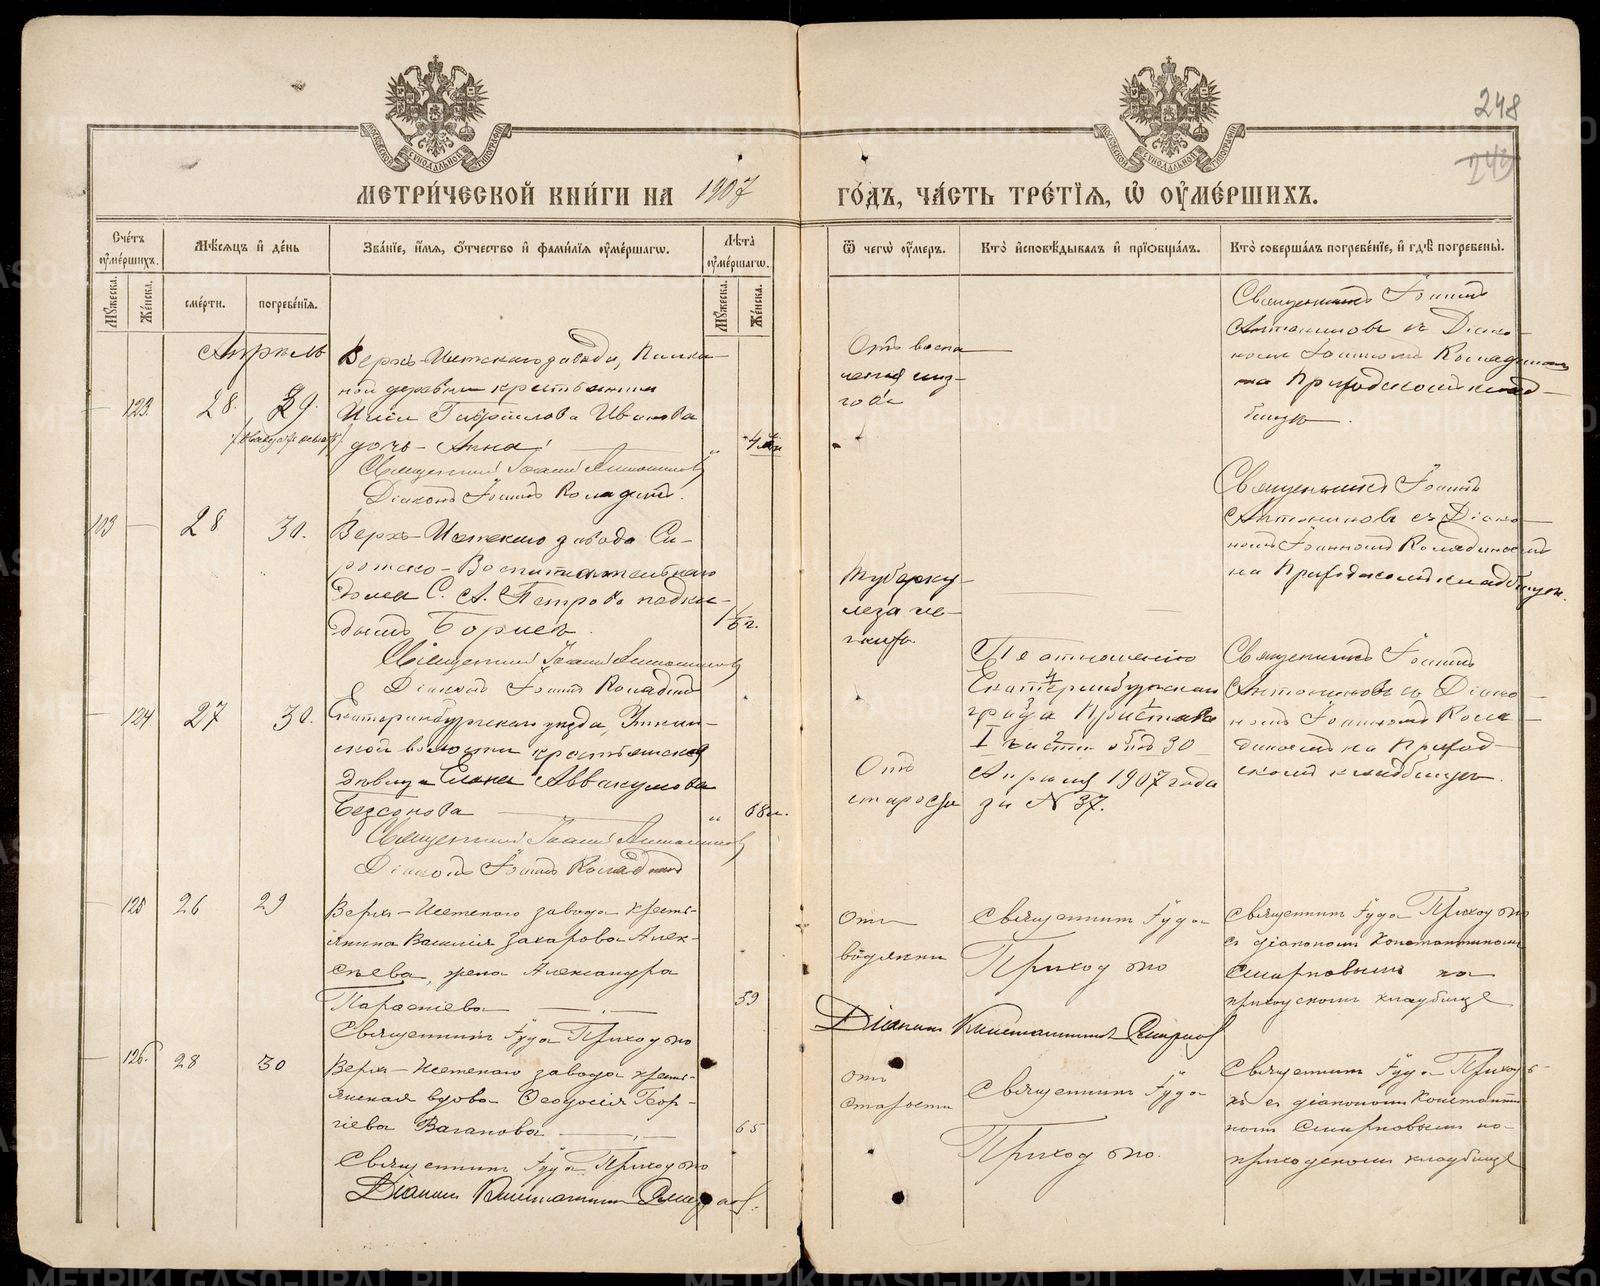 248
249
МЕТРИ́ЧЕСКОЙ КНИ́ГИ НА 1907 ГО́ДЪ, ЧА́СТЬ ТРЕ́ТІЯ, Ѡ҆ ОУ҆МЕ́РШИХЪ.
Сче́тъ оу҆ме́ршихъ.
Мѣ́сяцъ и҆ де́нь
Зва́нїе, и҆́мя, ѻ҆́тчество и҆ фами́лїя оу҆ме́ршагѡ.
Лѣ́та оу҆ме́ршагѡ.
Ѿ чегѡ̀ оу҆́меръ.
Кто̀ и҆сповѣ́дывалъ и҆ прїѡбща́лъ.
Кто̀ соверша́лъ погребе́нїе, и҆ гдѣ̀ погребены̀.
Мꙋ́жеска.
Же́нска.
сме́рти.
погребе́нїя.
Мꙋ́жеска.
Же́нска.
Апрѣль
123.
28.
29.
Верхъ-Исетскаго завода,
ной деревни крестьянина
Гавріилова Иванова
дочь - Анна
Священникъ Іоаннъ Антониновъ
Діаконъ Іоаннъ Коладинъ.
Отъ воспа
ленія
Священникъ Іоаннъ
Антониновъ съ Діако-
номъ Іоанномъ Коладинымъ
на Приходскомъ клад-
бищѣ.
103
28
30.
Верхъ-Исетскаго завода Си-
ротско-Воспитательнаго
Дома С. А. Петрова подки-
дышъ Борисъ.
1/6 г.
Священникъ Іоаннъ Антониновъ
Діаконъ Іоаннъ Коладинъ
Туберку-
леза ле-
гкихъ.
Священникъ Іоаннъ
Антониновъ съ Діако-
номъ Іоанномъ Коладинымъ
на Приходскомъ кладбищѣ.
124
27
30.
Екатеринбургскаго уѣзда,
ской волости крестьянская
дѣвица Елена Аввакумова
Безсонова
68 л.
Священникъ Іоаннъ Антониновъ
Діаконъ Іоаннъ Коладинъ
Отъ
старости
По отношенію
Екатеринбургскаго
града Пристава
I части отъ 30
Апрѣля 1907 года
за № 37.
Священникъ Іоаннъ
Антониновъ съ Діако-
номъ Іоанномъ Кола-
динымъ на Приход-
скомъ кладбищѣ.
125
26
29
Верхъ-Исетскаго завода кресть-
янина Василія Захарова Алек-
сѣева, жена Александра
59
Священникъ Іуда Приходько
Діаконъ Константинъ Смирновъ
Отъ
водянки
Священникъ Іуда
Приходько
Священникъ Іуда Приходько
съ діакономъ Константиномъ
Смирновымъ на
приходскомъ кладбище
126.
28
30
Верхъ-Исетскаго завода кресть-
янская вдова Ѳеодосія Геор-
гіева Ваганова
65
Священникъ Іуда Приходько
Діаконъ Константинъ Смирновъ.
Отъ
старости
Священникъ Іуда
Приходько.
Священникъ Іуда Приходь-
ко съ діакономъ Константи
номъ Смирновымъ на
приходскомъ кладбище